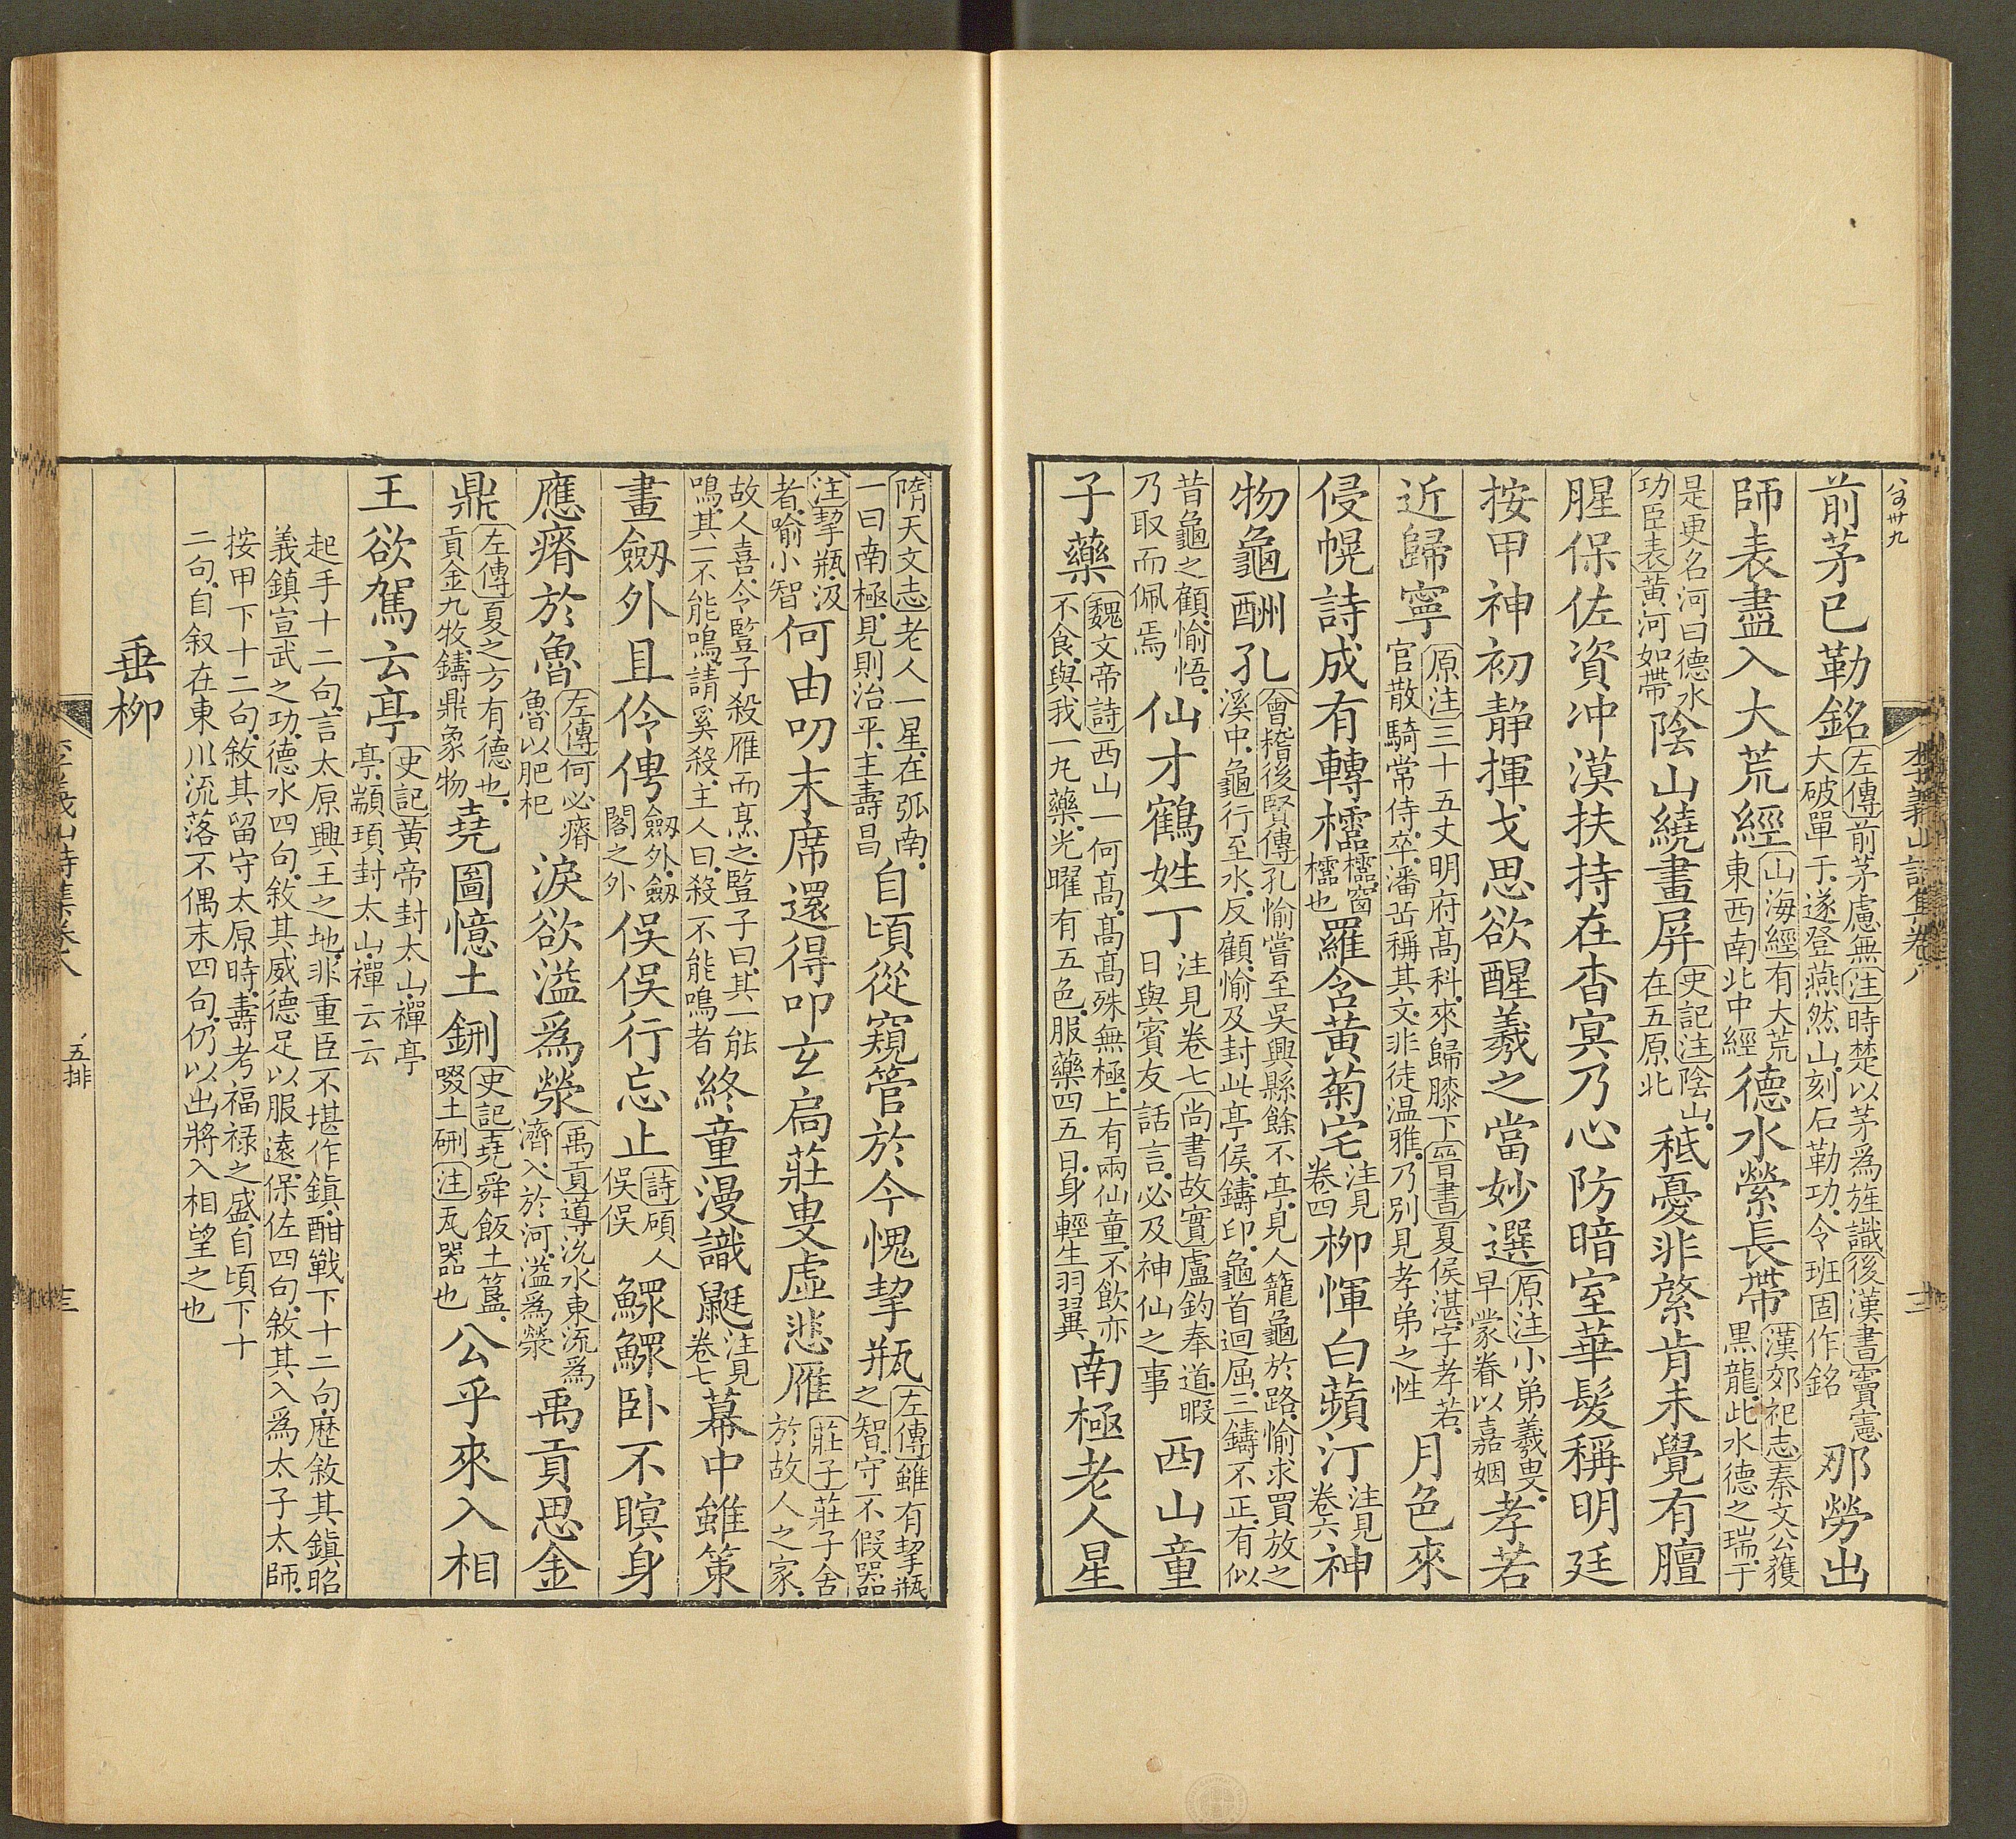 前茅已勒銘左傳前茅慮無注時楚以茅爲旌識後漢書竇憲大破單于遂登燕然山刻石勒功令班固作銘那勞出
師表盡入大荒經山海經有大荒東西南北中經德水縈長帶漢郊祀志秦文公獲黑龍此水德之瑞于
是更名河曰德水功臣表黃河如帶陰山繞畫屏史記注陰山在五原北秪憂非綮肯未覺有膻
腥保佐資冲漠扶持在杳冥乃心防暗室華髮稱明廷
按甲神初静揮戈思欲醒羲之當妙選原注小弟羲叟早蒙眷以嘉姻孝若
近歸寧原注三十五丈明府髙科來歸膝下晉書夏侯湛字孝若官散騎常侍卒潘岳稱其文非徒温雅乃別見孝弟之性月色來
侵幌詩成有轉櫺櫺窗櫺也羅含黄菊宅注見卷四柳惲白蘋汀注見卷六神
物龜酬孔會稽後賢傳孔愉嘗至吴興縣餘不亭見人籠龜於路愉求買放之溪中龜行至水反顧愉及封此亭侯鑄印龜首迴屈三鑄不正有似
昔龜之顧愉悟乃取而佩焉仙才鶴姓丁注見卷七尚書故實盧鈞奉道暇日與賓友話言必及神仙之事西山童
子藥魏文帝詩西山一何髙髙髙殊無極上有兩仙童不飲亦不食與我一丸藥光曜有五色服藥四五日身輕生羽翼南極老人星
隋天文志老人一星在弧南一曰南極見則治平主壽昌自頃從窺管於今愧挈瓶左傳雖有挈瓶之智守不假器
注挈瓶汲者喻小智何由叨末席還得叩玄扃莊叟虚悲雁莊子莊子舍於故人之家
故人喜令豎子殺雁而烹之豎子曰其一能鳴其一不能鳴請奚殺主人曰殺不能鳴者終童漫識鼮注見卷七幕中雖策
畫劒外且伶俜劒外劒閣之外俁俁行忘止詩碩人俁俁鰥鰥卧不瞑身
應瘠於魯左傳何必瘠魯以肥杞淚欲溢爲滎禹貢導沇水東流爲濟入於河溢爲滎禹貢思金
鼎左傳夏之方有德也貢金九牧鑄鼎象物堯圖憶土鉶史記堯舜飯土簋啜土硎注瓦器也公乎來入相
王欲駕云亭史記黄帝封太山禪亭亭顓頊封太山禪云云
起手十二句言太原興王之地非重臣不堪作鎮酣戰下十二句歷敘其鎮昭
義鎮宣武之功德水四句敘其威德足以服遠保佐四句敘其入爲太子太師
按甲下十二句敘其留守太原時壽考福禄之盛自頃下十
二句自叙在東川流落不偶末四句仍以出將入相望之也
垂柳
李義山詩集卷八
五排